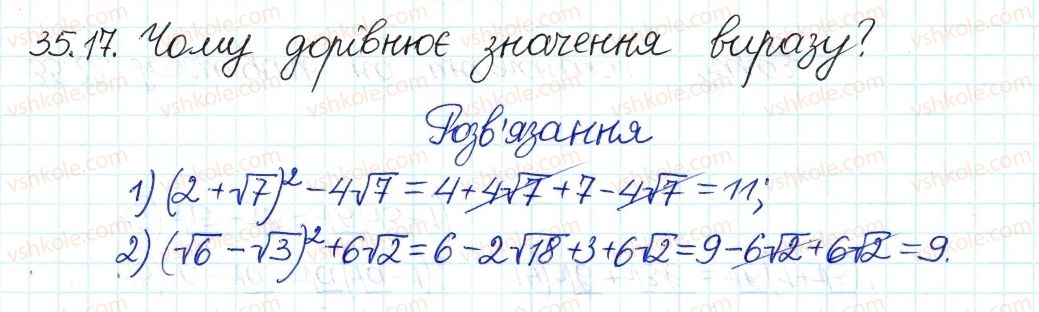 35.17. Чому дорівнює значення виразу?
Розв'язання
1) (2 + √7)² - 4√7 = 4 + 4√7 + 7 - 4√7 = 11;
2) (√6 - √3)² + 6√2 = 6 - 2√18 + 3 + 6√2 = 9 - 6√2 + 6√2 = 9.